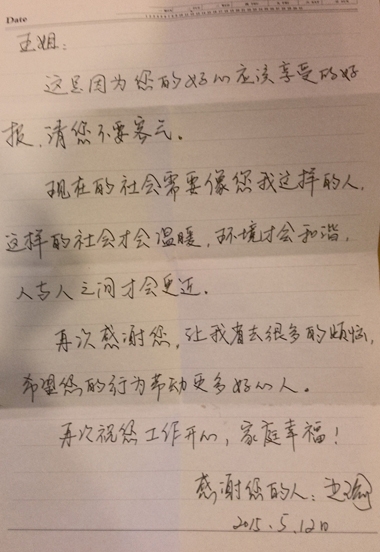 Date
王姐：
这是因为您的好心应该享受的好
报，请您不要客气。
现在的社会需要像您我这样的人，
这样的社会才会温暖，环境才会和谐，
人与人之间才会更近。
再次感谢您，让我省去很多的烦恼，
希望您的行为带动更多好心人。
再次祝您工作开心，家庭幸福！
感谢您的人：
2015.5.12日